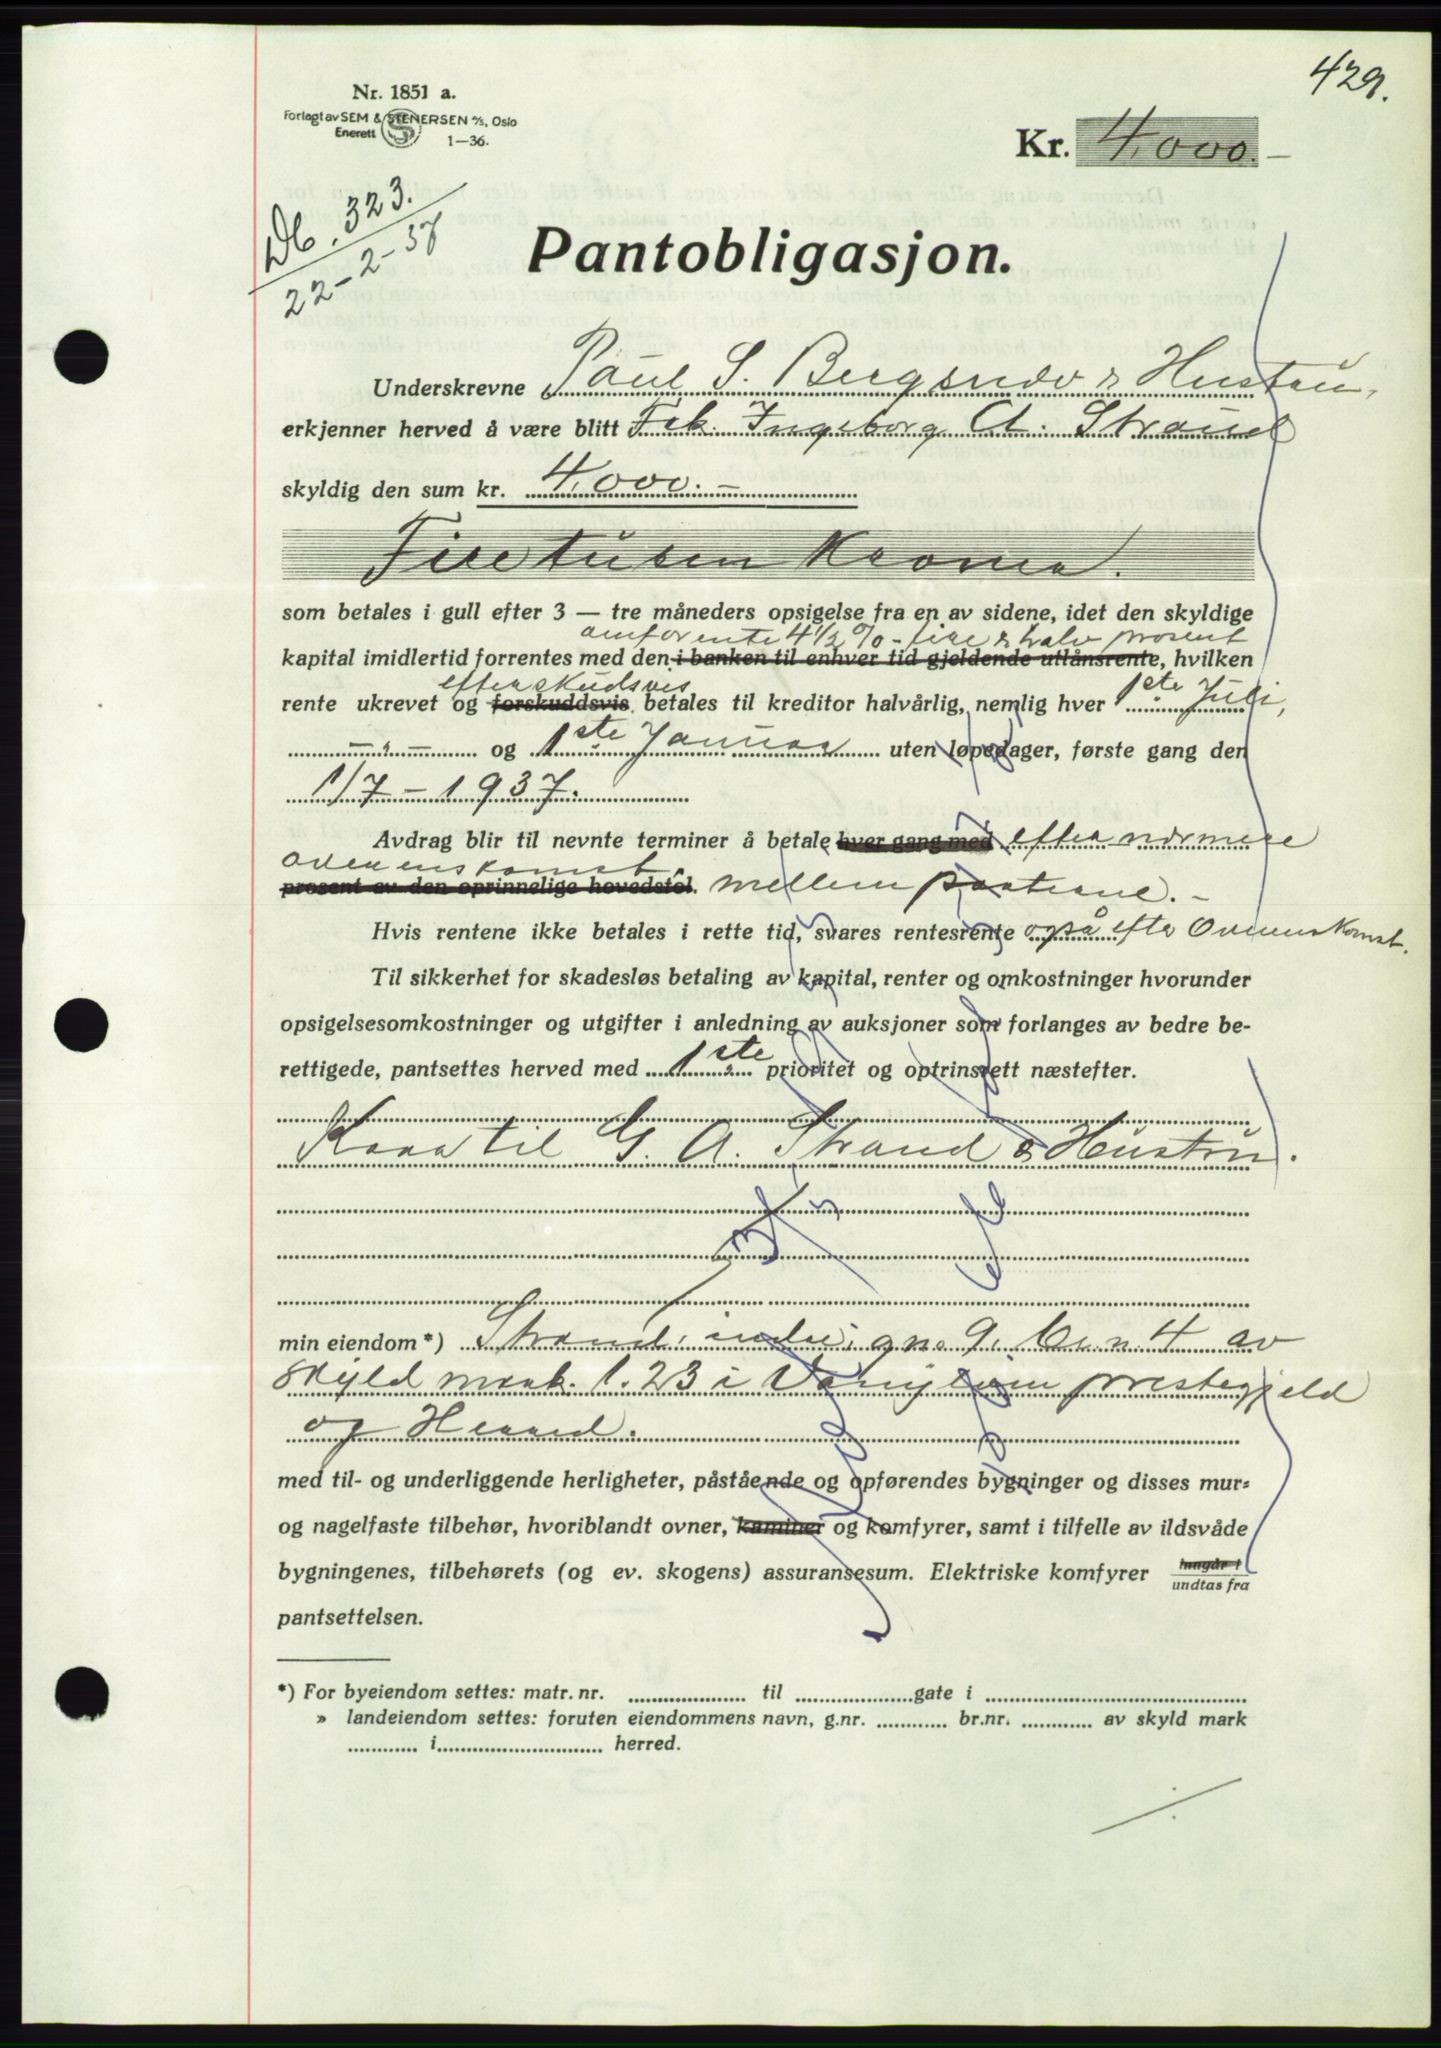 429.
Nr. 1851 a.
Forlagt av SEM & STENERSEN A/S, Oslo
Enerett
1—36.
Kr. 4.000.—
Db. 323.
22-2-37
Pantobligasjon.
Underskrevne Paul S. Bergsnev & Hustru,
erkjenner herved å være blitt Frk. Ingeborg A. Strand
skyldig den sum kr. 4.000.—
Firetusen Kroner.
som betales i gull efter 3 — tre måneders opsigelse fra en av sidene, idet den skyldige
omforente 4 1/2 % - fire & halv prosent
kapital imidlertid forrentes med den i banken til enhver tid gjeldende utlånsrente, hvilken
efterskudsvis
rente ukrevet og forskuddsvis betales til kreditor halvårlig, nemlig hver 1ste Juli,
— " — og 1ste Januar uten løpedager, første gang den
1/7 — 1937.
Avdrag blir til nevnte terminer å betale hver gang med efter nærmere
overenskomst
prosent av den oprinnelige hovedstol. mellem parterne.—
Hvis rentene ikke betales i rette tid, svares rentesrente også efter Overenskomst.
Til sikkerhet for skadesløs betaling av kapital, renter og omkostninger hvorunder
opsigelsesomkostninger og utgifter i anledning av auksjoner som forlanges av bedre be-
rettigede, pantsettes herved med 1ste prioritet og optrinsrett næstefter.
Kaar til G. A. Strand & Hustru.
min eiendom*) Strand, indre, gn. 9, br. n. 4 av
skyld mark. 1.23 i Vanylven prestegjeld
og Herred.
med til- og underliggende herligheter, påstående og opførendes bygninger og disses mur-
og nagelfaste tilbehør, hvoriblandt ovner, kaminer og komfyrer, samt i tilfelle av ildsvåde
bygningenes, tilbehørets (og ev. skogens) assuransesum. Elektriske komfyrer inngår i
undtas fra
pantsettelsen.
*) For byeiendom settes: matr. nr. .................... til ....................gate i ............................................
» landeiendom settes: foruten eiendommens navn, g.nr. ............ br.nr. ............ av skyld mark
............ i............................ herred.